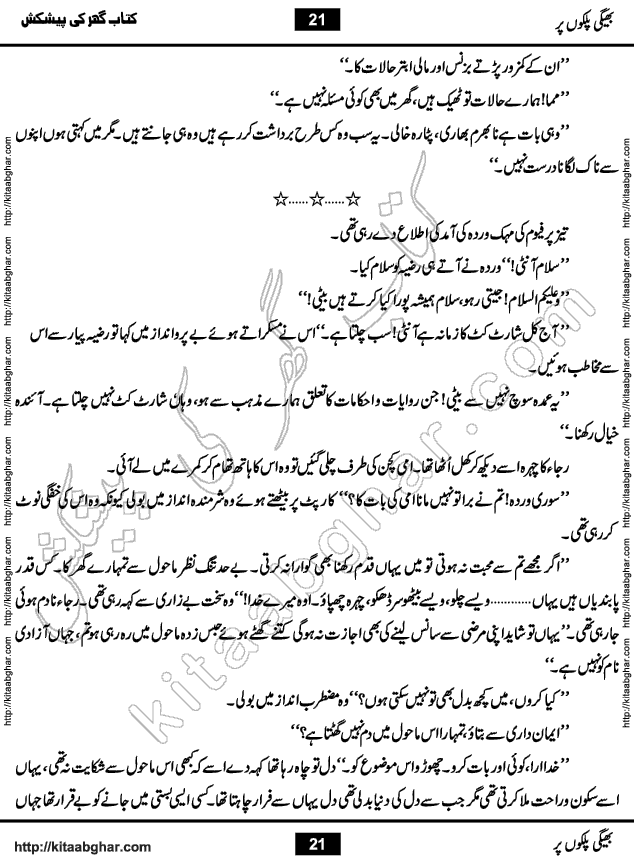 بھیگی پلکوں پر 21 کتاب گھر کی پیشکش
’’ان کے کمزور پڑتے بزنس اور مالی ابتر حالات کا۔‘‘
’’مما! ہمارے حالات تو ٹھیک ہیں، گھر میں بھی کوئی مسئلہ نہیں ہے۔‘‘
’’وہی بات ہے نا بھرم بھاری، پٹارہ خالی۔ یہ سب وہ کس طرح برداشت کر رہے ہیں وہ ہی جانتے ہیں۔ مگر میں کہتی ہوں اپنوں
سے ناک لگانا درست نہیں۔‘‘
☆......☆......☆
تیز پرفیوم کی مہک وردہ کی آمد کی اطلاع دے رہی تھی۔
’’سلام آنٹی!‘‘ وردہ نے آتے ہی رضیہ کو سلام کیا۔
’’وعلیکم السلام! جیتی رہو، سلام ہمیشہ پورا کیا کرتے ہیں بیٹی!‘‘
’’آج کل شارٹ کٹ کا زمانہ ہے آنٹی! سب چلتا ہے۔‘‘ اس نے مسکراتے ہوئے بے پروا انداز میں کہا تو رضیہ پیار سے اس
سے مخاطب ہوئیں۔
’’یہ عمدہ سوچ نہیں ہے بیٹی! جن روایات و احکامات کا تعلق ہمارے مذہب سے ہو، وہاں شارٹ کٹ نہیں چلتا ہے۔ آئندہ
خیال رکھنا۔‘‘
رجاء کا چہرہ اسے دیکھ کر کھل اُٹھا تھا۔ امی کچن کی طرف چلی گئیں تو وہ اس کا ہاتھ تھام کر کمرے میں لے آئی۔
’’سوری وردہ! تم نے برا تو نہیں مانا امی کی بات کا؟‘‘ کارپٹ پر بیٹھتے ہوئے وہ شرمندہ انداز میں بولی کیونکہ وہ اس کی خفگی نوٹ
کر رہی تھی۔
’’اگر مجھے تم سے محبت نہ ہوتی تو میں یہاں قدم رکھنا بھی گوارا نہ کرتی۔ بے حد تنگ نظر ماحول ہے تمہارے گھر کا۔ کس قدر
پابندیاں ہیں یہاں............ ویسے چلو، ویسے بیٹھو سر ڈھکو، چہرہ چھپاؤ۔ اوہ میرے خدا!‘‘ وہ سخت بے زاری سے کہہ رہی تھی۔ رجاء نادم ہوئی
جا رہی تھی۔ ’’یہاں تو شاید اپنی مرضی سے سانس لینے کی بھی اجازت نہ ہوگی کتنے گھٹے ہوئے حبس زدہ ماحول میں رہ رہی ہو تم، جہاں آزادی
نام کو نہیں ہے۔‘‘
’’کیا کروں، میں کچھ بدل بھی تو نہیں سکتی ہوں؟‘‘ وہ مضطرب انداز میں بولی۔
’’ایمان داری سے بتاؤ، تمہارا اس ماحول میں دم نہیں گھٹتا ہے؟‘‘
’’خدارا، کوئی اور بات کرو۔ چھوڑو اس موضوع کو۔‘‘ دل تو چاہ رہا تھا کہہ دے اسے کہ کبھی اس ماحول سے شکایت نہ تھی، یہاں
اسے سکون و راحت ملا کرتی تھی مگر جب سے دل کی دنیا بدلی تھی دل یہاں سے فرار چاہتا تھا۔ کسی ایسی بستی میں جانے کو بے قرار تھا جہاں
http://kitaabghar.com 21 بھیگی پلکوں پر
http://kitaabghar.com http://kitaabghar.com http://kitaabghar.com http://kitaabghar.com http://kitaabghar.com http://kitaabghar.com
http://kitaabghar.com http://kitaabghar.com http://kitaabghar.com http://kitaabghar.com http://kitaabghar.com http://kitaabghar.com
کتاب گھر کی پیشکش
kitaabghar.com